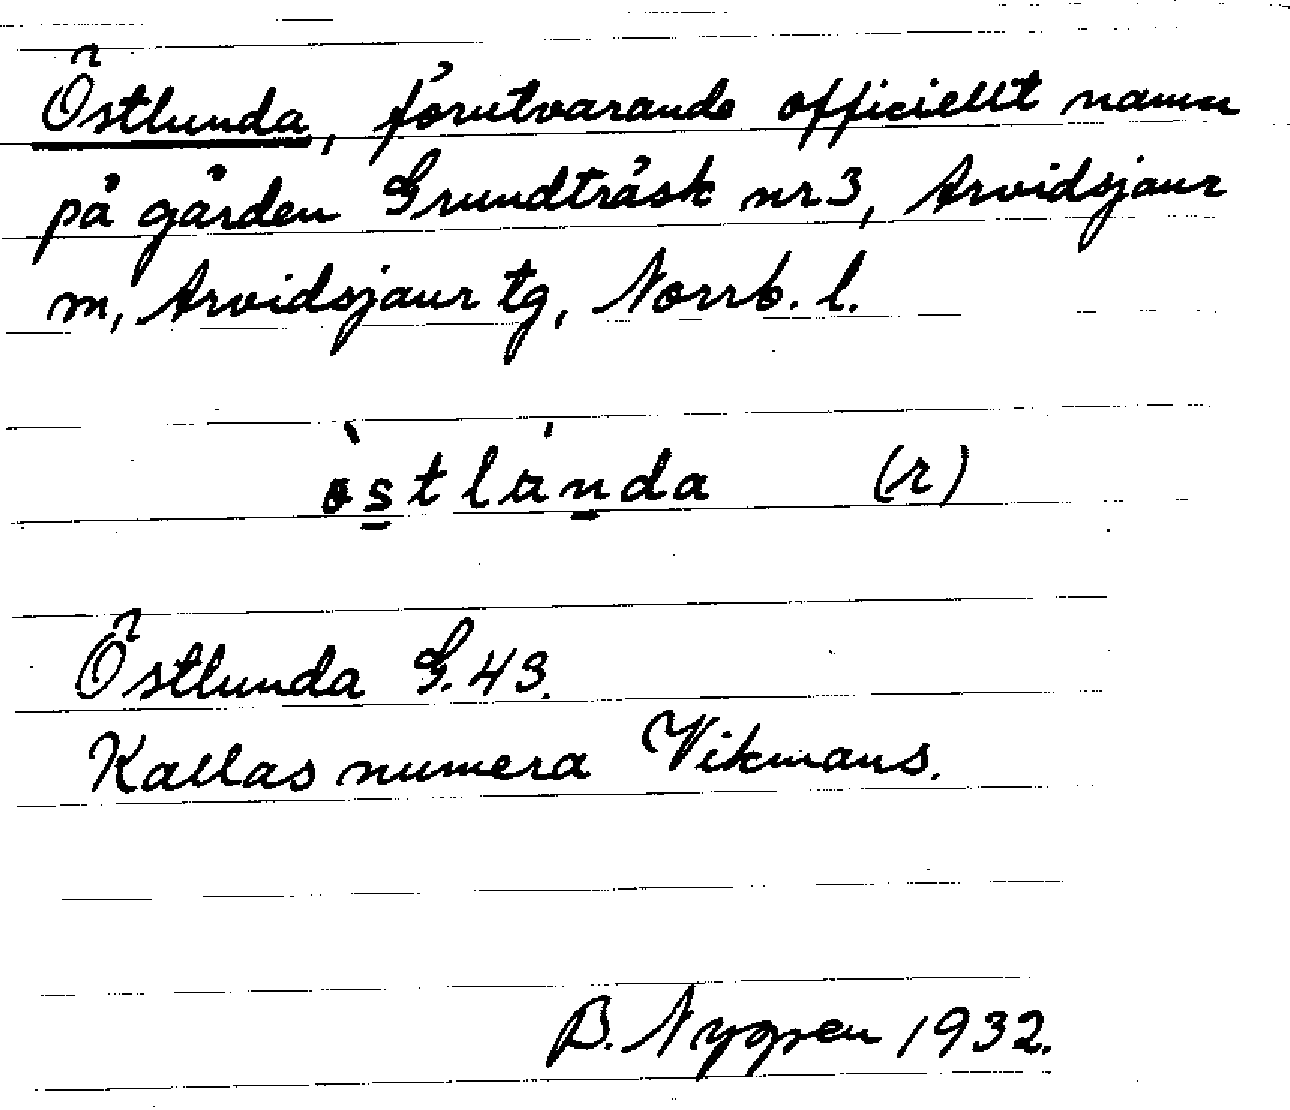 Östlunda, förutvarande officiellt namn
på gården Grundträsk nr 3, Arvidsjaur
m, Arvidsjaur tg, Norrb. l.
(r)
Östlunda G. 43.
Kallas numera Vikmans.
B. Nygren 1932.